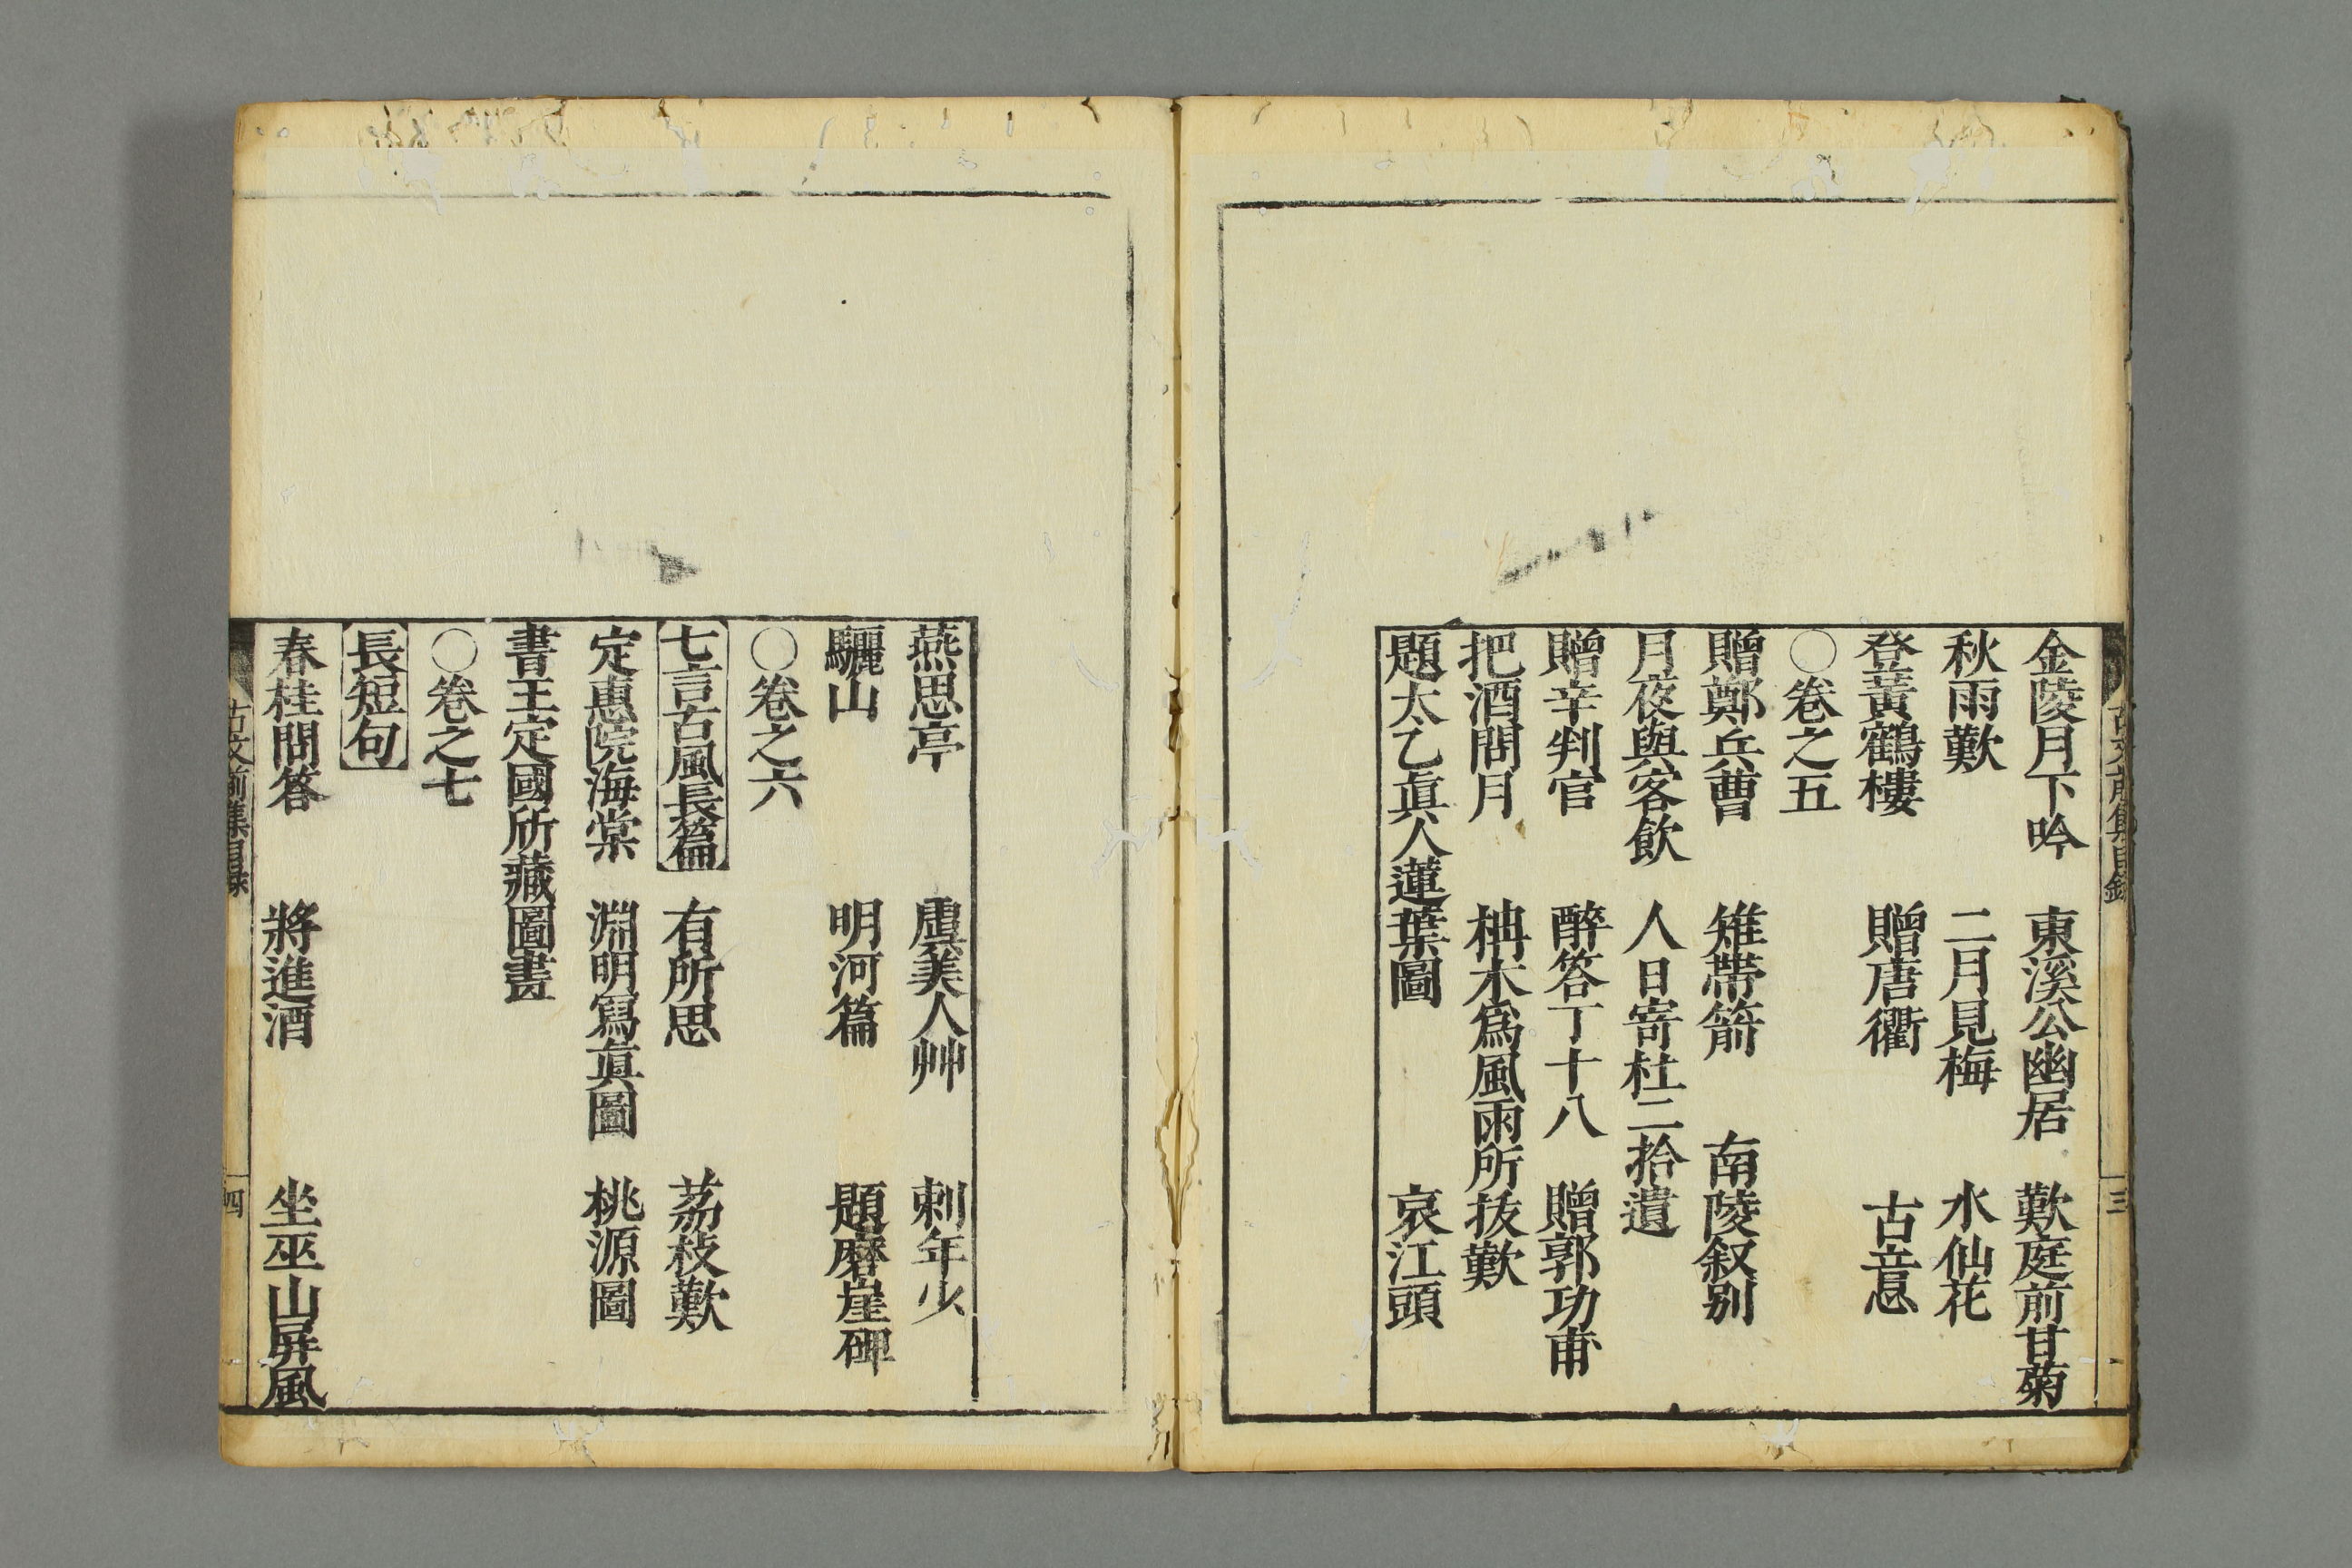 金陵月下吟　東溪公幽居　歎庭前甘菊
秋雨歎　二月見梅　水仙花
登黃鶴樓　贈唐衢　古意
○卷之五
贈鄭兵曹　雉帶箭　南陵叙别
月夜與客飲　人日寄杜二拾遺
贈辛判官　醉答丁十八　贈郭功甫
把酒問月　柟木爲風雨所拔歎
題太乙眞人蓮葉圖　哀江頭
燕思亭　虞美人艸　刺年少
驪山　明河篇　題磨崖碑
○卷之六
七言古風長篇　有所思　荔枝歎
定惠院海棠　淵明寫眞圖　桃源圖
書王定國所藏圖畫
○卷之七
長短句
春桂問答　將進酒　坐巫山屏風
古文前集目録
四